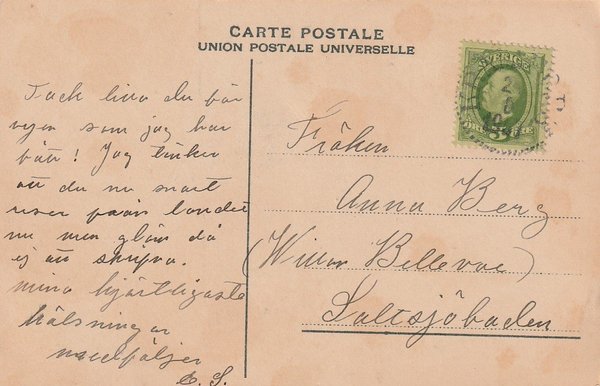 CARTE POSTALE
UNION POSTALE UNIVERSELLE
SVERIGE
Tack lina du för
vyen som jag har
fått! Jag tänker
att du nu snart
reser från landet
nu men glöm då
ej att skrifva.
mina hjärtligaste
hälsningar
medföljer
E. S.
Fröken
Anna Berg
(Willa Bellevue)
Saltsjöbaden